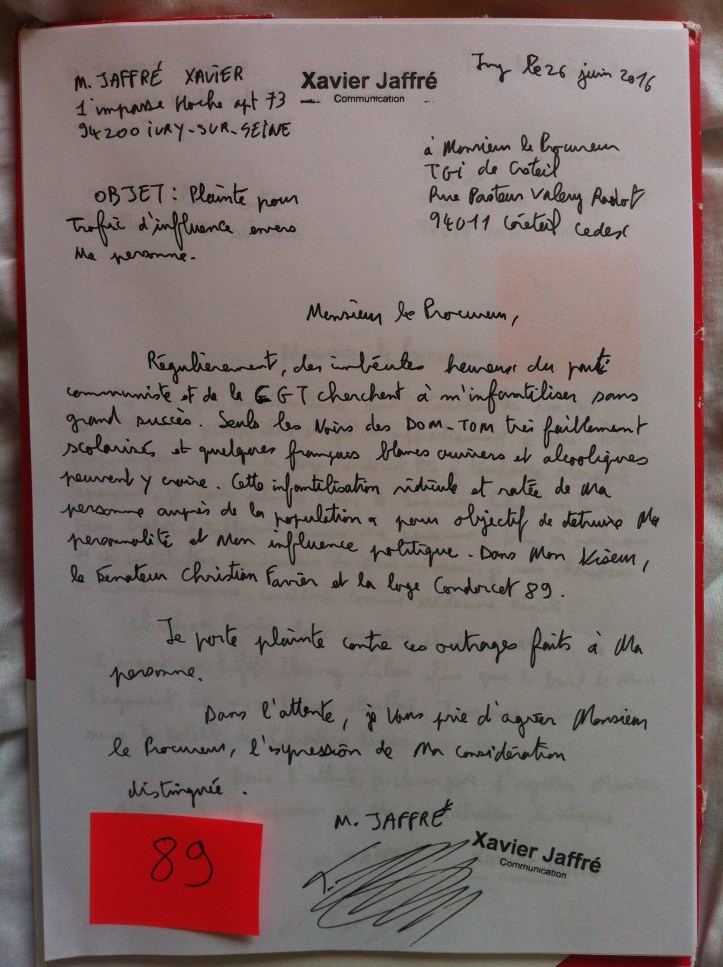 M. JAFFRÉ XAVIER
1 impasse Hoche apt 73
94200 IVRY-SUR-SEINE
Xavier Jaffré
Communication
Ivry le 26 juin 2016
à Monsieur le Procureur
TGI de Créteil
Rue Pasteur Valery Radot
94011 Créteil Cedex
OBJET : Plainte pour
Trafic d'influence envers
Ma personne.
Monsieur le Procureur,
Régulièrement, des imbéciles heureux du parti
communiste et de la CGT cherchent à m'infantiliser sans
grand succès. Seuls les Noirs des DOM-TOM très faiblement
scolarisés et quelques français blancs ouvriers et alcooliques
peuvent y croire. Cette infantilisation ridicule et ratée de Ma
personne auprès de la population a pour objectif de detruire Ma
personnalité et Mon influence politique. Dans Mon Viseur,
le Senateur Christian Favier et la loge Condorcet 89.
Je porte plainte contre ces outrages faits à Ma
personne.
Dans l'attente, je Vous prie d'agréer Monsieur
le Procureur, l'expression de Ma considération
distinguée.
M. JAFFRÉ
Xavier Jaffré
Communication
89